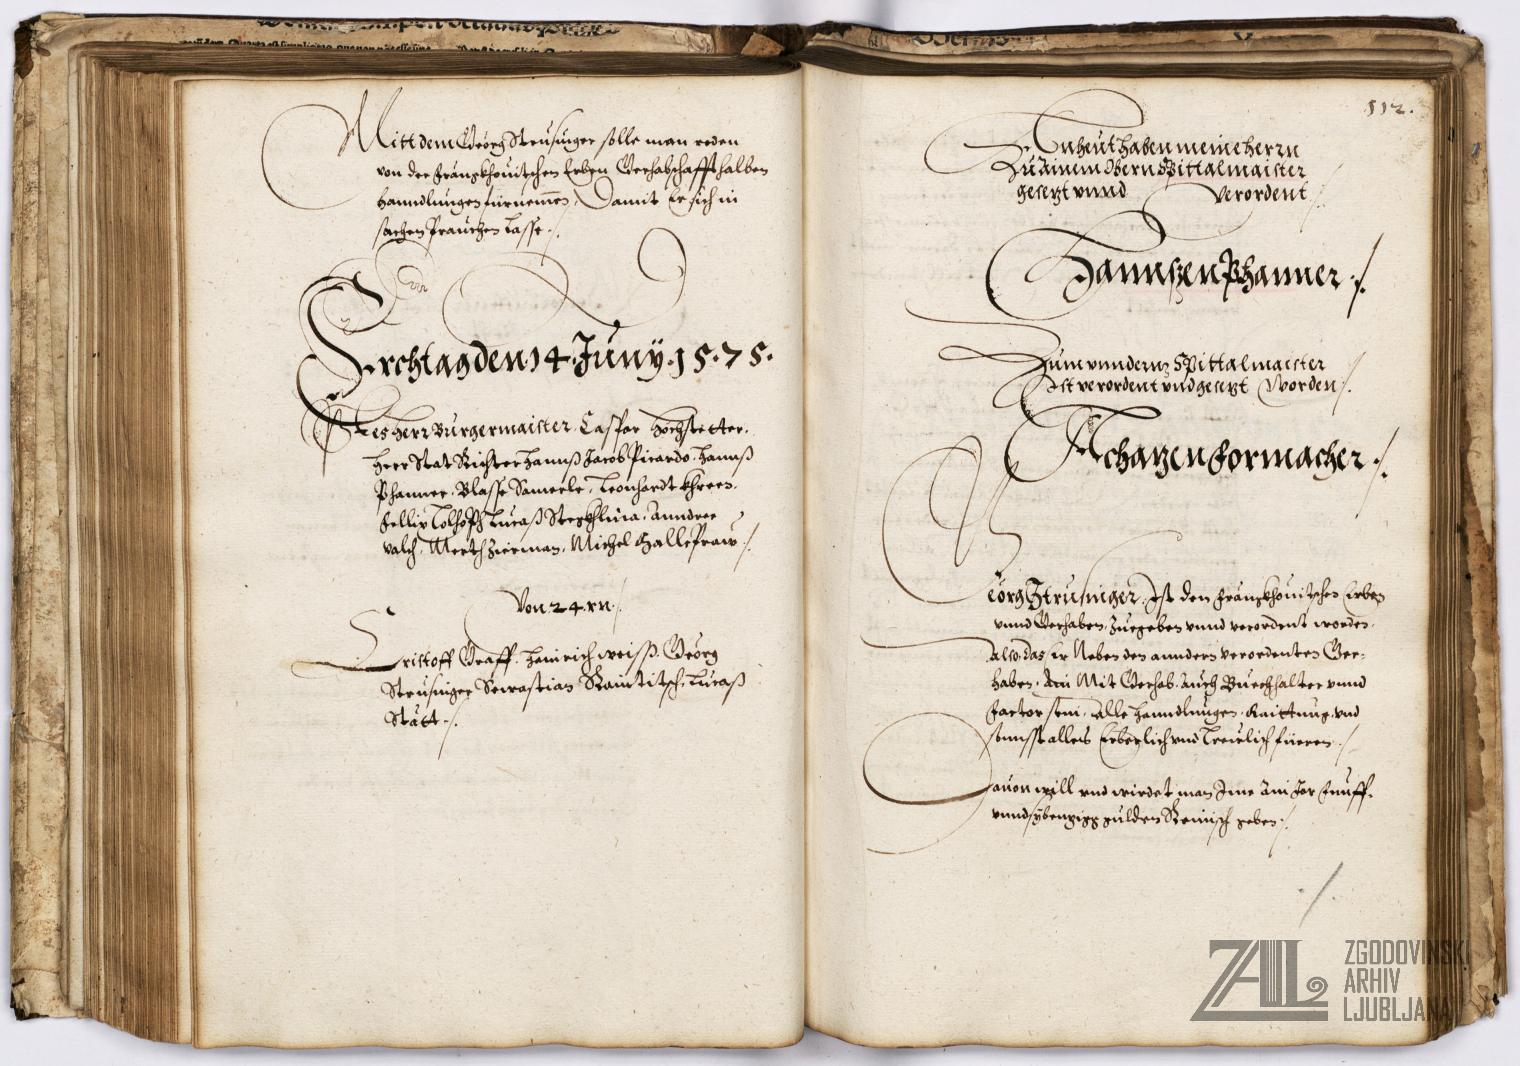 Mitt dem Georg Strusinger solle man reden
von der Frankhouitschen Erben Gerhabschafft halben
Hanndlungen fürnemmen, Damit Er sich in
sachen Prauchen Lasse ./.
Erchtag den 14 Juny .15.75.
Herr Burgermaister Caspar Höchstetter.
Herr Stat Richter Hannß Jacob Picardo. Hannß
Phanner. Blasse Samerle, Leonhardt Khren.
Fellix Lucaß Anndree
Valch, Merth Zierman, Michel ./.
Von 24.rn ./.
Cristoff Graff. Hainrich weiss. Georg
Strusinger Sewastian Raintitsch, Lucaß
Statt ./.
112.
Anheut haben meine herrn
Zu Ainem Obern Spittalmaister
gesetzt vnnd Verordent ./.
Hannsen Phanner ./.
Zum vnndern Spittalmaister
Ist verordent vnd gesetzt Worden ./.
Achatzen Formacher ./.
Georg Strusinger. Ist den Frankhouitschen Erben
vnnd Gerhaben, Zuegeben vnnd verordent worden.
Also das er Neben den anndern verordenten Ger=
haben. Ain Mit Gerhab. Auch Buechhalter vnnd
Factor sein. Alle Hanndlungen. Raittung. vnd
sonnst alles Erberlich vnd Treulich füeren ./.
Dauon will vnd wirdet man Ime Ain Jar Funff.
vnnd sybenzigg gulden Reinisch geben ./.
./.
ZAL
ZGODOVINSKI
ARHIV
LJUBLJANA